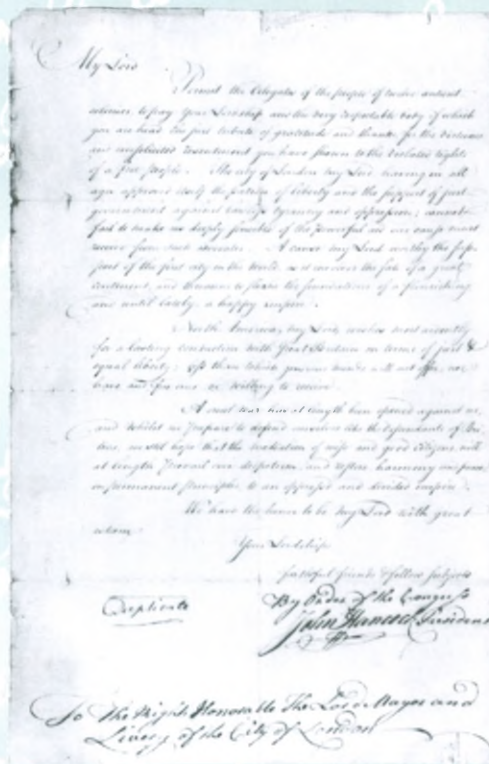 My Lord
Permit the Delegates of the people of twelve antient
colonies, to pay Your Lordship and the very respectable body of which
you are head the just tribute of gratitude and thanks for the virtuous
and unsolicited resentment you have shown to the violated rights
of a free people. The city of London my Lord having in all
ages approved itself the patron of liberty and the support of just
government against lawless tyranny and oppression, cannot
fail to make us deeply sensible of the powerful aid our cause must
receive from such advocates. A cause my Lord worthy the sup-
port of the first city in the world as it involves the fate of a great
continent, and threatens to shake the foundations of a flourishing
and until lately a happy empire.
North America, my Lord, wishes most ardently
for a lasting connection with Great Britain on terms of just &
equal liberty; less than which generous minds will not offer, nor
brave and free ones be willing to receive.
A cruel war has at length been opened against us,
and whilst we prepare to defend ourselves like the descendants of Bri-
tons, we still hope that the mediation of wise and good citizens, will
at length prevail over despotism, and restore harmony and peace,
on permanent principles, to an oppressed and divided empire.
We have the honor to be my Lord with great
esteem
Your Lordships
faithful friends & fellow subjects
By Order of the Congress
Duplicate
John Hancock President
To The Right Honorable The Lord Mayor and
Livery of the City of London